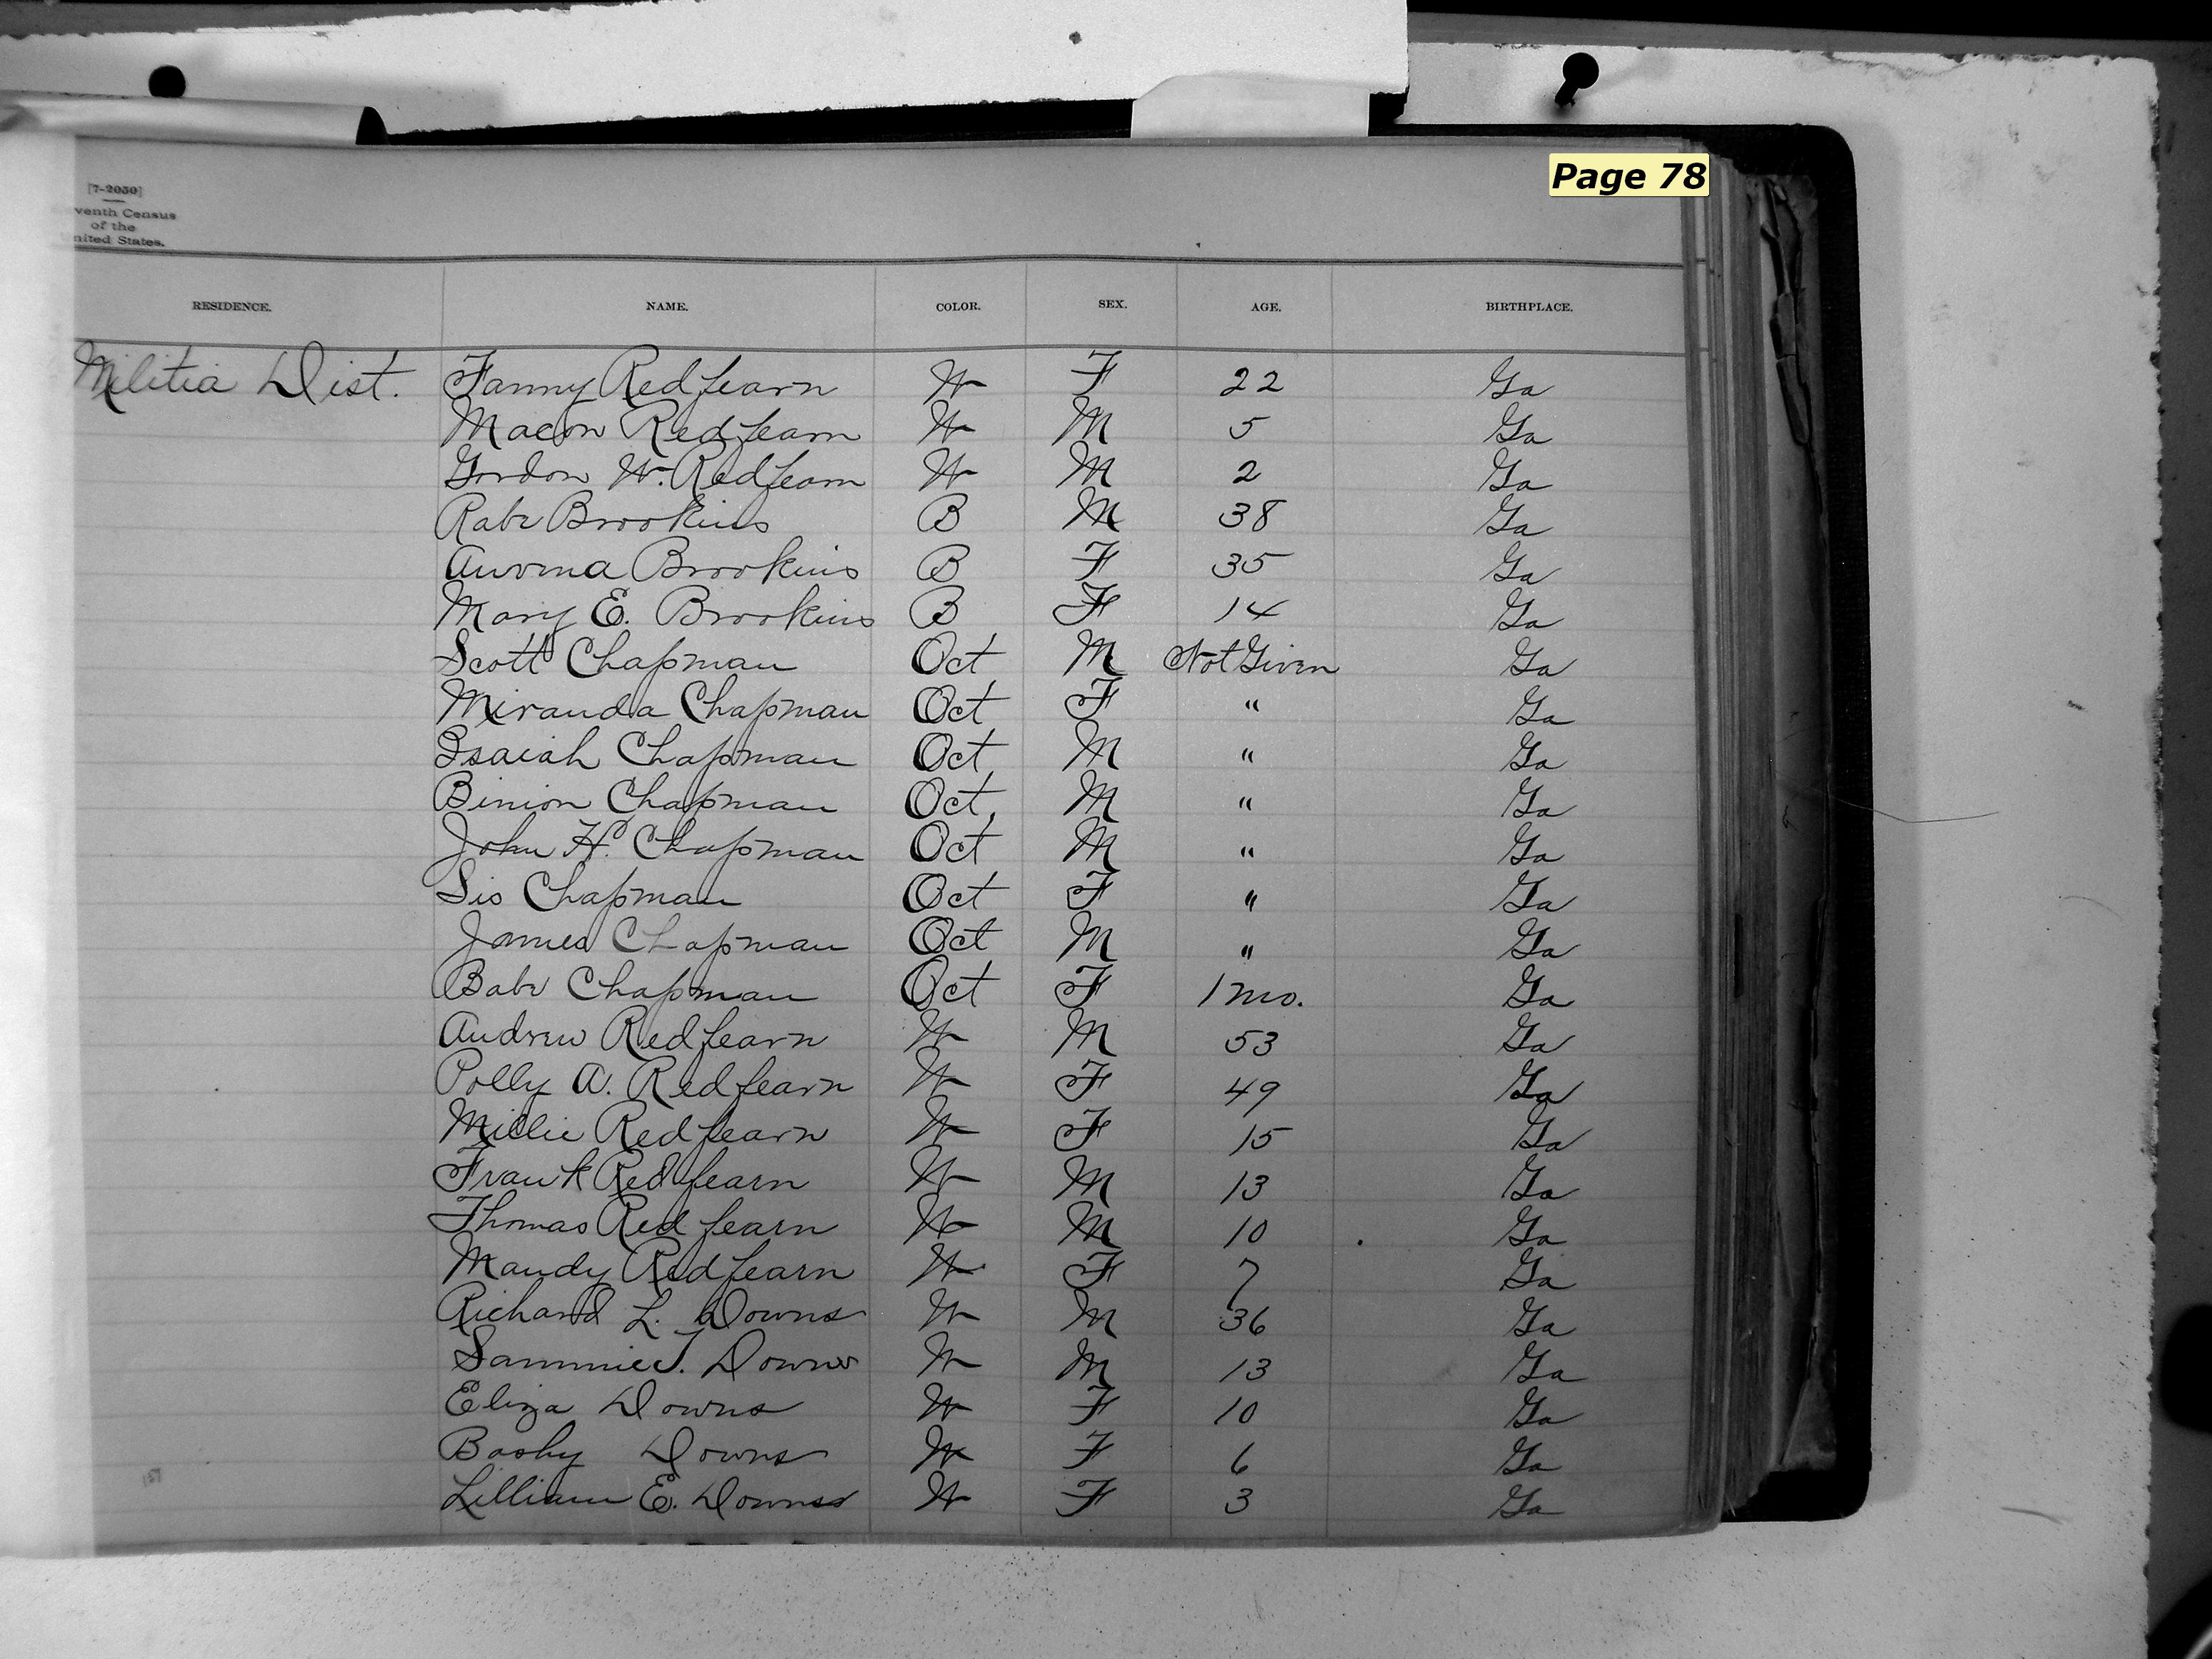 Page 78
[7-2050]
venth Census
of the
nited States.
RESIDENCE. NAME. COLOR. SEX. AGE. BIRTHPLACE.
Militia Dist. Fanny Redfearn W F 22 Ga
Macon Redfearn W M 5 Ga
Gordon W. Redfearn W M 2 Ga
Rabe Brookins B M 38 Ga
Brookins B F 35 Ga
Mary E. Brookins B F 14 Ga
Scott Chapman Oct M Not Given Ga
Miranda Chapman Oct F " Ga
Isaiah Chapman Oct M " Ga
Binion Chapman Oct. M " Ga
John H. Chapman Oct M " Ga
Sis Chapman Oct F " Ga
James Chapman Oct M " Ga
Babe Chapman Oct F 1 mo. Ga
Andrew Redfearn W M 53 Ga
Polly A. Redfearn W F 49 Ga
Millie Redfearn W F 15 Ga
Frank Redfearn W M 13 Ga
Thomas Redfearn W M 10 Ga
Mandy Redfearn W F 7 Ga
Richard L. Downs W M 36 Ga
Sammie J. Downs W M 13 Ga
Eliza Downs W F 10 Ga
Bashy Downs W F 6 Ga
Lillian E. Downs W F 3 Ga